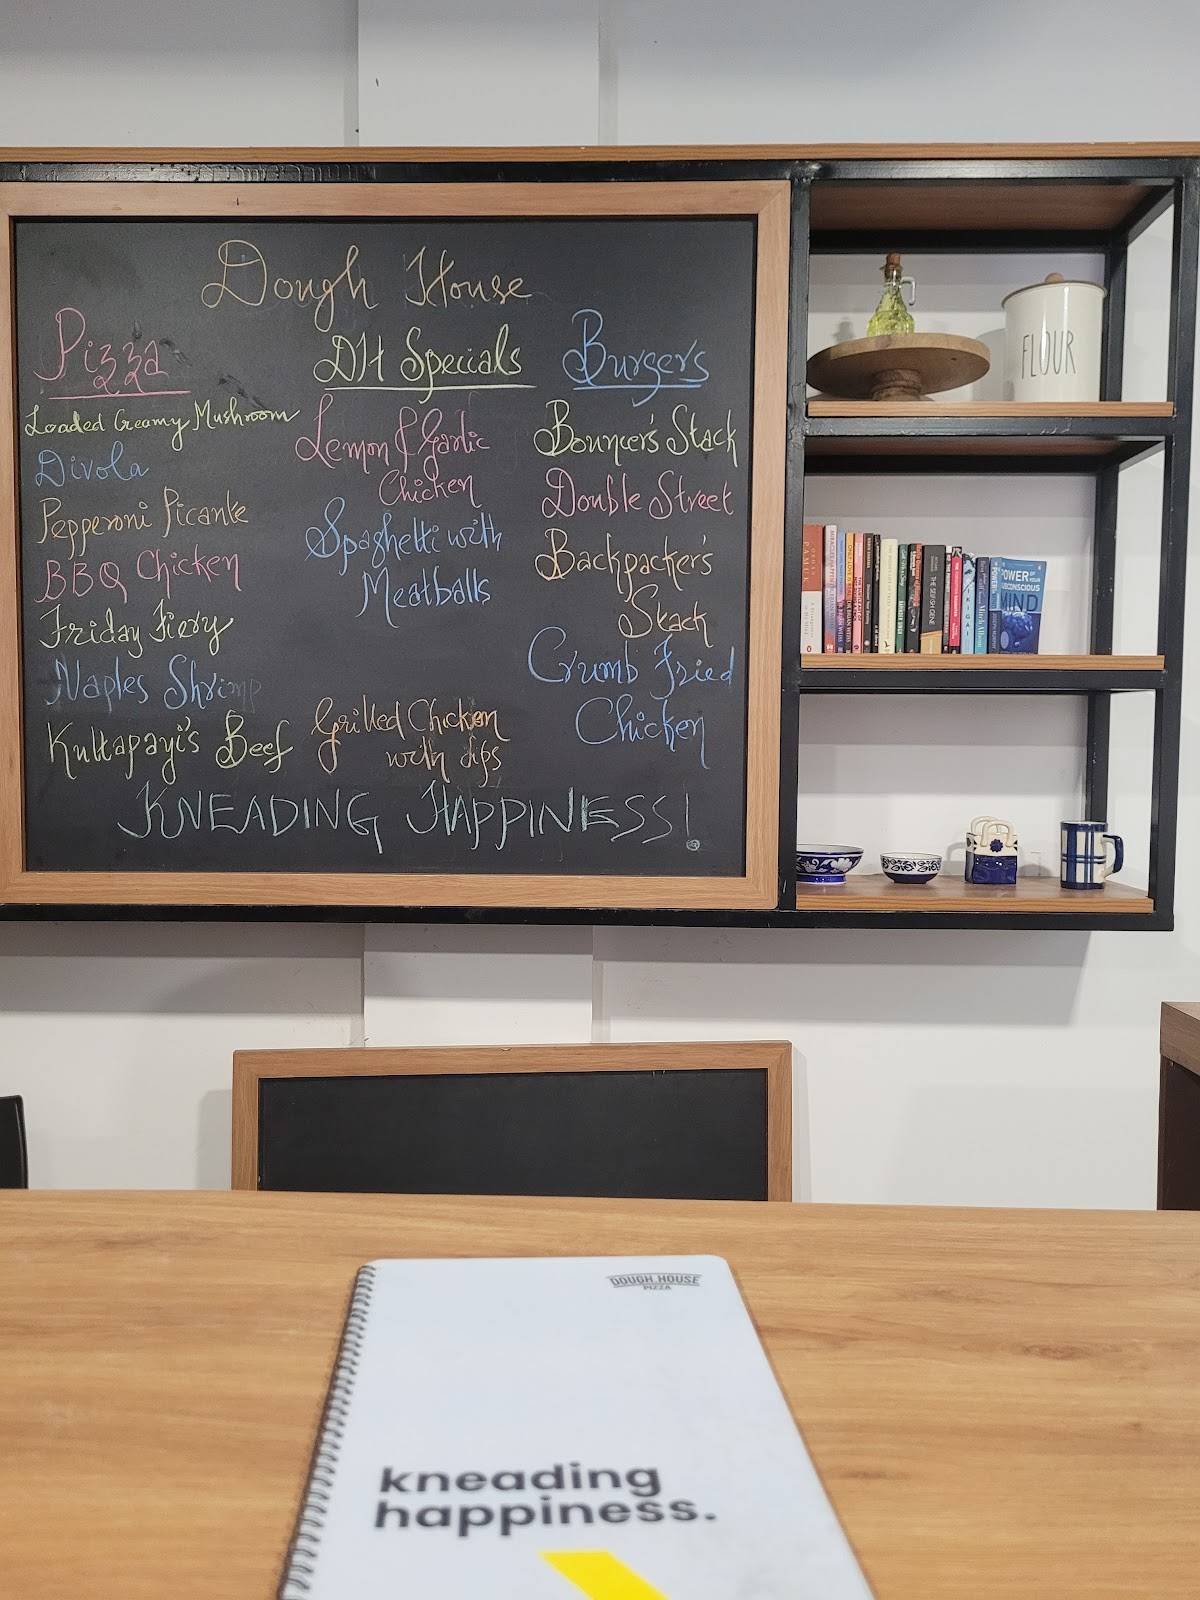 Dough House
Pizza
Loaded Creamy Mushroom
Divola
Pepperoni Picante
BBQ Chicken
Friday Fiery
Naples Shrimp
Kuttapayi's Beef
DH Specials
Lemon & Garlic
Chicken
Spaghetti with
Meatballs
Grilled Chicken
with dips
Burgers
Bouncer's Stack
Double Street
Backpacker's
Stack
Crumb Fried
Chicken
KNEADING HAPPINESS!
FLOUR
PAMUK
THE SELFISH GENE
IKIGAI
POWER OF YOUR
SUBCONSCIOUS
MIND
DOUGH HOUSE
PIZZA
kneading
happiness.